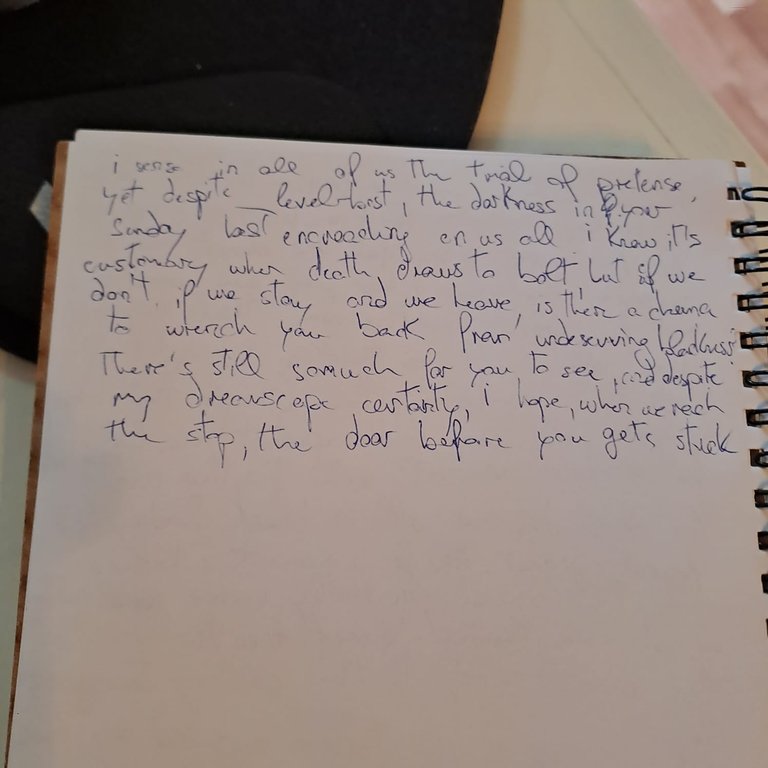 i sense in all of us the trial of pretense,
yet despite level-host, the darkness in your
Sunday last encroaching on us all i know it's
customary when death draws to bolt, but if we
don't, if we stay and we heave, is there a chance
to wrench you back from undeserving blackness?
There's still so much for you to see, and despite
my dreamscape certainty, i hope, when we reach
the stop, the door before you gets stuck